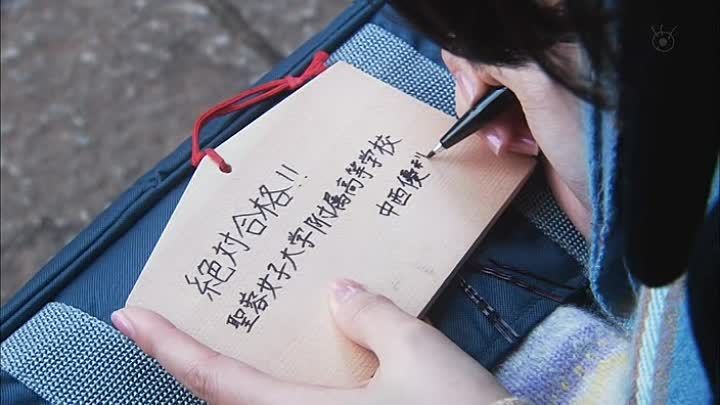 絶対合格!!
聖蓉女子大学附属高等学校
中西優利